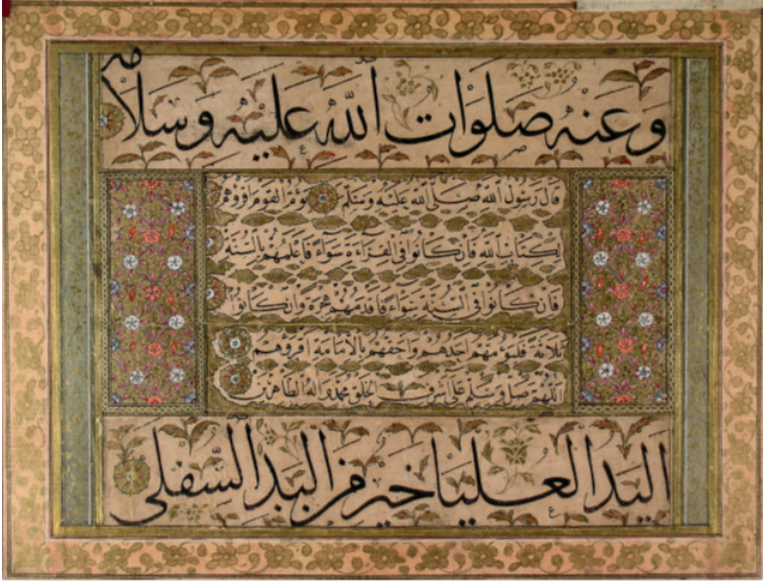 وعنه صلوات الله عليه وسلامه
قال رسول الله صلى الله عليه وسلم يؤم القوم اقرؤهم
لكتاب الله فان كانوا في القراءة سواء فاعلمهم بالسنة
فان كانوا في السنة سواء فاقدمهم هجرة وان كانوا
ثلاثة فليؤمهم احدهم واحقهم بالامامة اقرؤهم
اللهم صل وسلم على اشرف الخلق محمد واله الطاهرين
اليد العليا خير من اليد السفلى